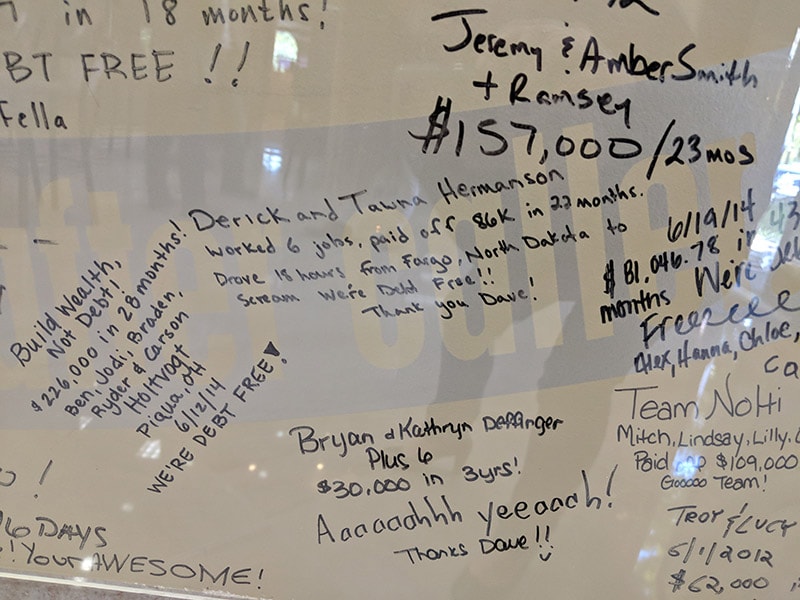 7 in 18 months!
BT FREE !!
Fella
Jeremy & Amber Smith
+ Ramsey
$157,000/23 mos
Derick and Tawna Hermanson
worked 6 jobs, paid off 86K in 22 months.
Drove 18 hours from Fargo, North Dakota to
scream We're Debt Free!!
Thank you Dave!
6/19/14
$81,046.78 in 43
months We're
Freeeeeee
Alex, Hanna, Chloe,
Ca
Build Wealth,
Not Debt!
$226,000 in 28 months!
Ben, Jodi, Braden,
Ryder & Carson
Holtvogt
Piqua, OH
6/12/14
WE'RE DEBT FREE!
Bryan & Kathryn
Plus 6
$30,000 in 3yrs!
Aaaaaahhh yeeaaah!
Thanks Dave!!
Team Nolti
Mitch, Lindsay, Lilly,
Paid $109,000
Gooooo Team!
Troy & Lucy
5/1/2012
$62,000
after caller
O!
6 DAYS
! Your AWESOME!